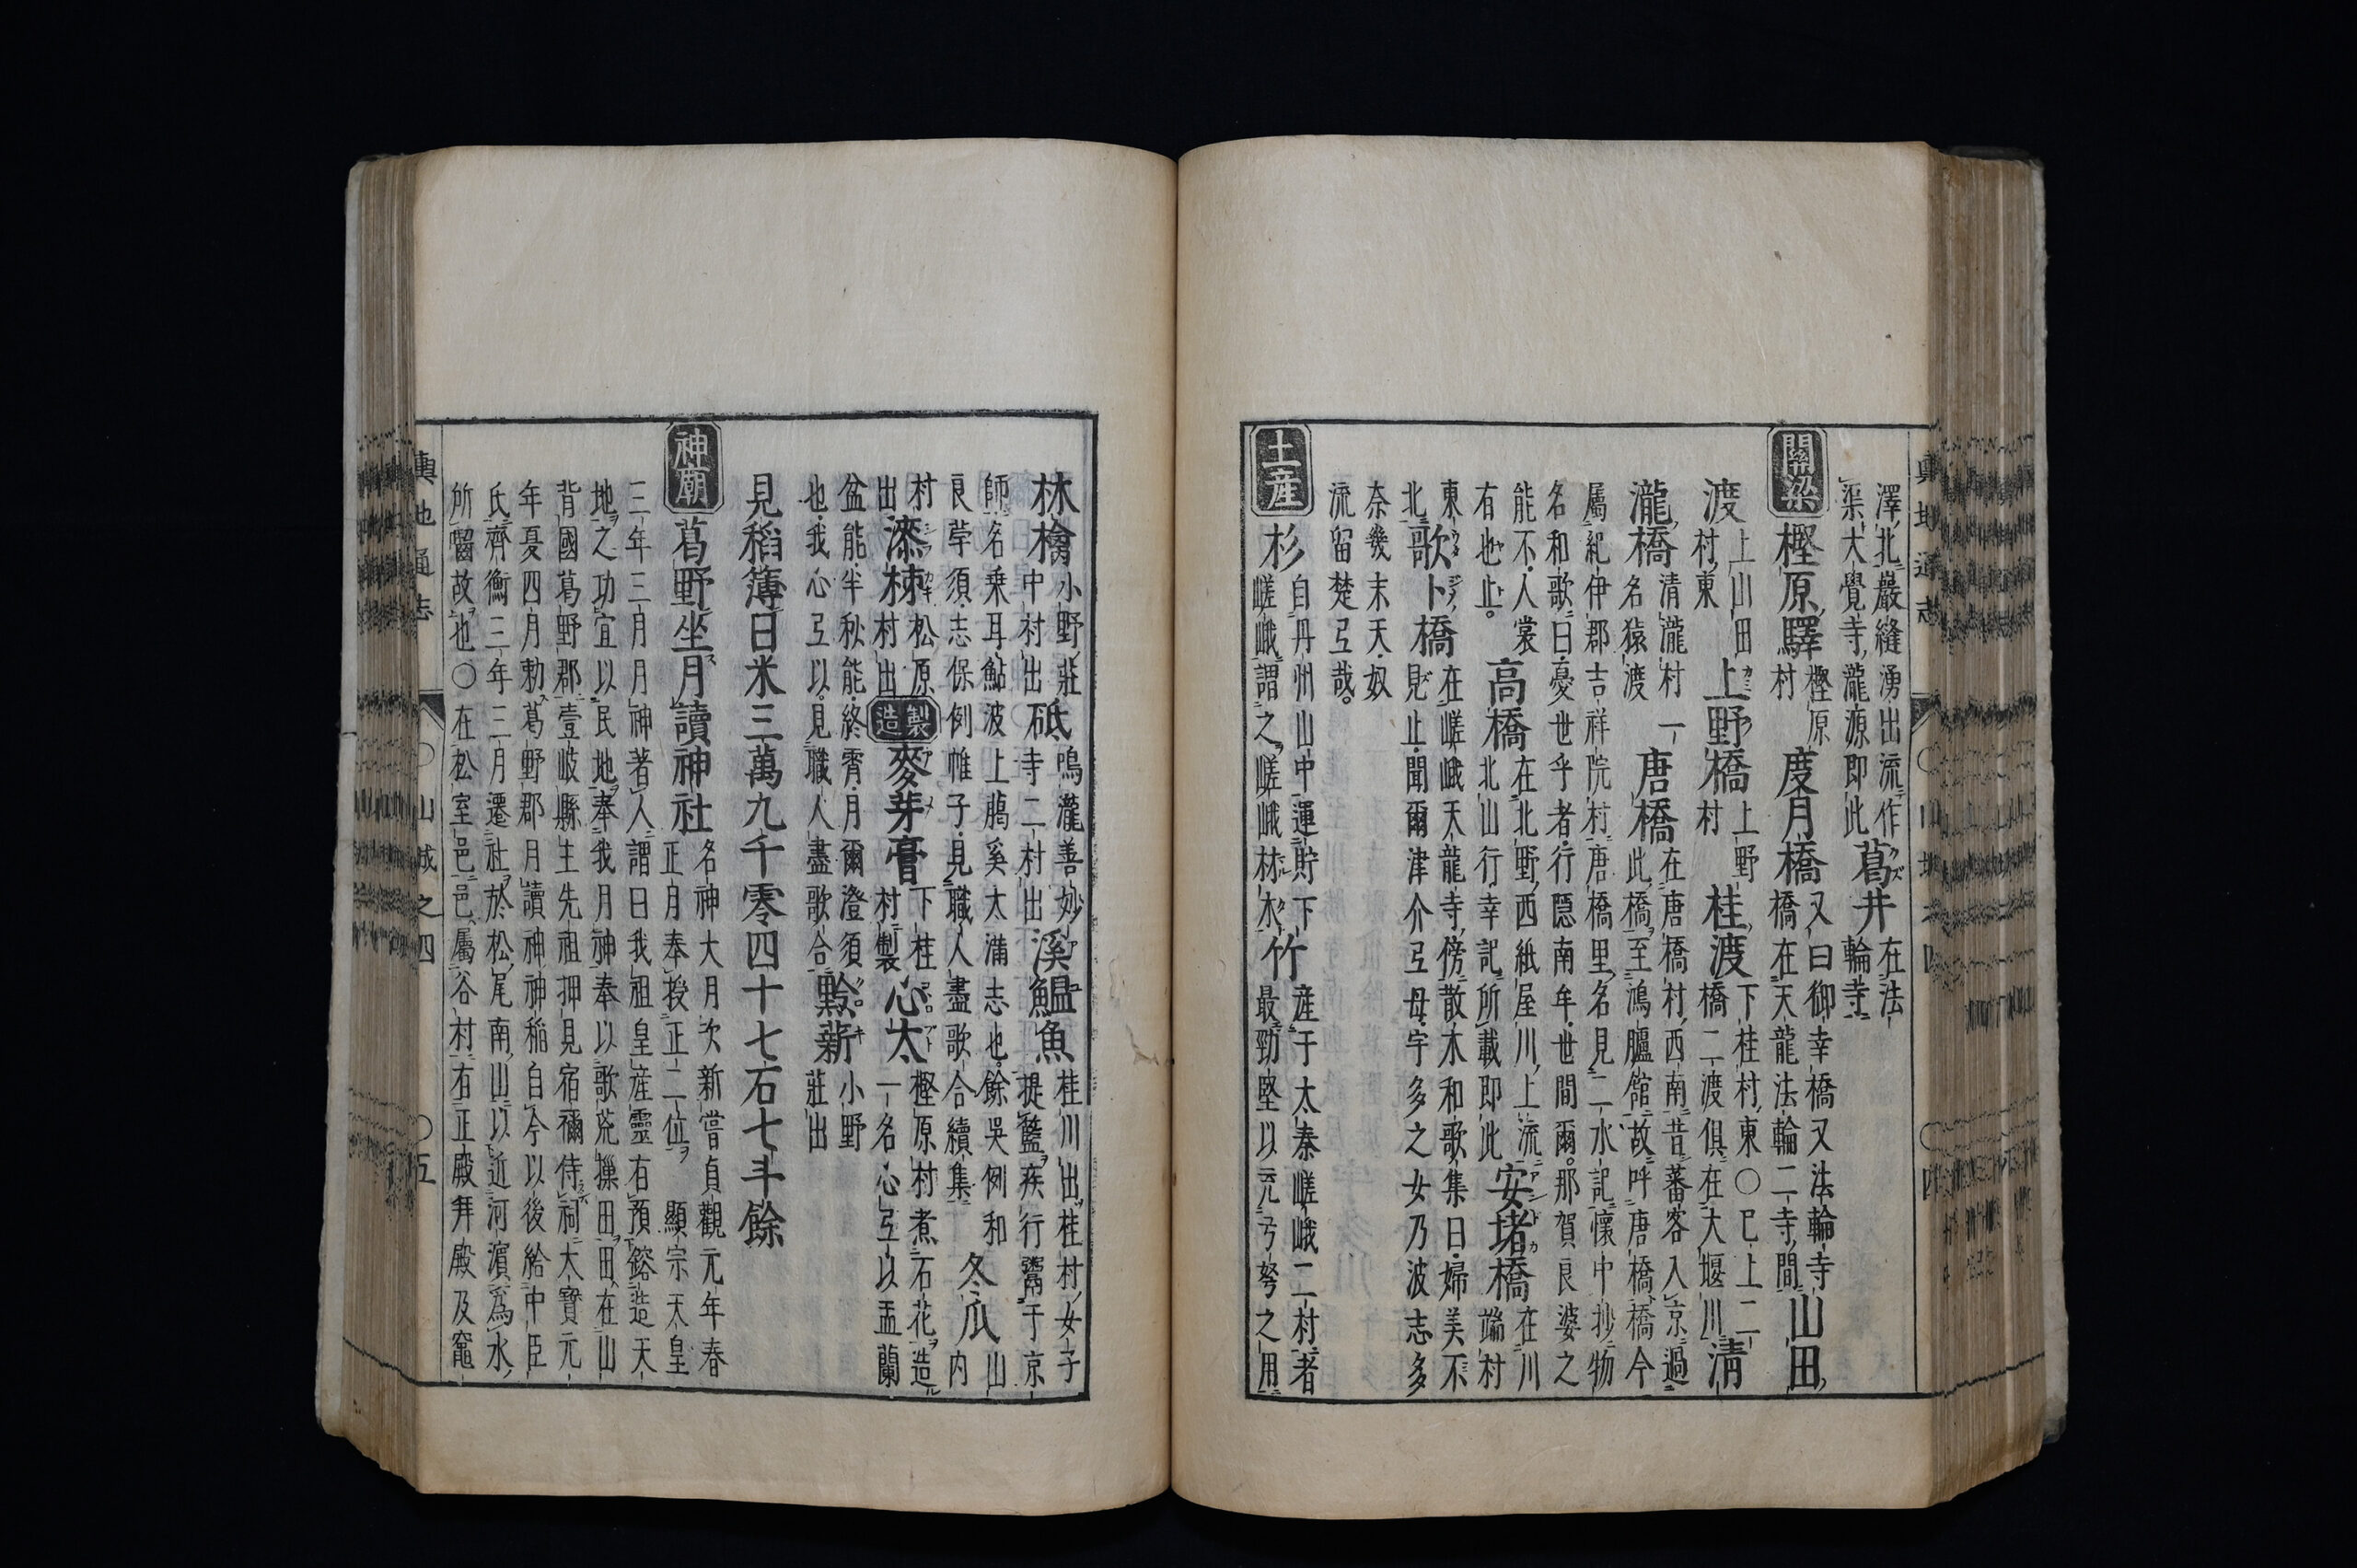 輿地通志 ○山城之四 ○四
澤北巖縫湧出流作
渠大覺寺瀧源即此
葛井
在法
輪寺
關梁 樫原驛
樫原
村
度月橋
又曰御幸橋又法輪寺
橋在天龍法輪二寺間
山田
渡
上山田
村東
上野橋
上野
村
桂渡
下桂村東○已上二
橋二渡俱在大堰川
清
瀧橋
清瀧村一
名猿渡
唐橋
在唐橋村西南昔蕃客入京過
此橋至鴻臚館故呼唐橋橋今
屬紀伊郡吉祥院村唐橋里名見二水記懷中抄物
名和歌曰憂世乎者行隱南年世間爾那賀良婆之
能不人裳
有也止
高橋
在北野西紙屋川上流
北山行幸記所載即此
安堵橋
在川
端村
東
北
歌卜橋
在嵯峨天龍寺傍散木和歌集曰婦美不
見止聞爾津介弖毋宇多之女乃波志多
奈幾末天奴
流留楚弖哉
土産 杉
自丹州山中運貯下
嵯峨謂之嵯峨材木
竹
産于太秦嵯峨二村者
最勁堅以充弓弩之用
林檎
小野莊
中村出
砥
鳴瀧善妙
寺二村出
溪鰛魚
桂川出桂村女子
提籃疾行鬻于京
師名乘耳鮎波上﨟奚太滿志也餘吳例和
良莩須志保例帷子見職人盡歌合續集
冬瓜
山
内
村
出
漆柹
松原
村出
製造 麥芽膏
下桂
村製
心太
樫原村煮石花造
一名心弖以盂蘭
盆能半秋能終霄月爾澄須
也我心弖以見職人盡歌合
黔薪
小野
莊出
見稻簿曰米三萬九千零四十七石七斗餘
神廟 葛野坐月讀神社
名神大月次新嘗貞觀元年春
正月奉授正二位 顯宗天皇
三年三月月神著人謂曰我祖皇産靈右預鎔造天
地之功宜以民地奉我月神奉以歌荒樔田田在山
背國葛野郡壹岐縣主先祖押見宿禰侍祠大寶元
年憂四月勅葛野郡月讀神神稻自今以後給中臣
氏齊衡三年三月遷社於松尾南山以近河濱為水
所嚙故也○在松室邑邑屬谷村有正殿拜殿及竈
輿地通志 ○山城之四 ○五